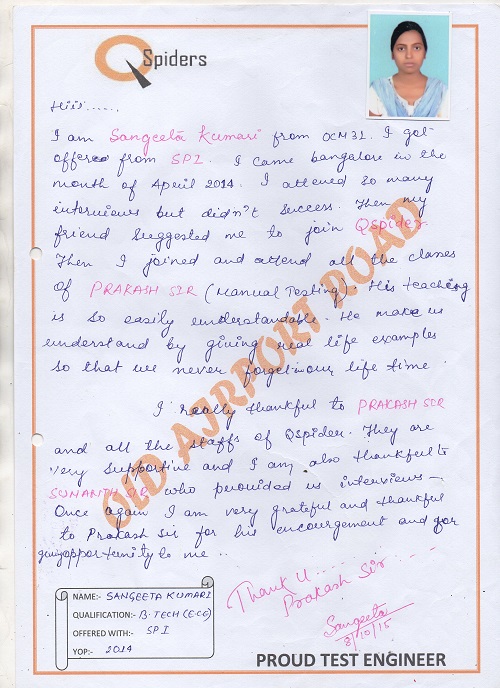 Q Spiders
Hiii......
I am Sangeeta Kumari from OCM31. I got
offered from SPI. I came bangalore in the
month of April 2014. I attened so many
interviews but didn't success. Then my
friend suggested me to join Qspider.
Then I joined and attend all the classes
of PRAKASH SIR (Manual Testing). His teaching
is so easily understandable. He make us
understand by giving real life examples
so that we never forget in our life time.
I really thankful to PRAKASH SIR
and all the staffs of QSpider. They are
very supportive and I am also thankful to
SUNANTH SIR who perovided us interviews -
Once again I am very grateful and thankful
to Prakash sir for his encourgement and for
giving opportunity to me ..
Thank U..........
Prakash Sir
Sangeeta
8/10/15
OLD AIRPORT ROAD
NAME:- SANGEETA KUMARI
QUALIFICATION:- B.TECH (E.C.E)
OFFERED WITH:- SPI
YOP:- 2014
PROUD TEST ENGINEER